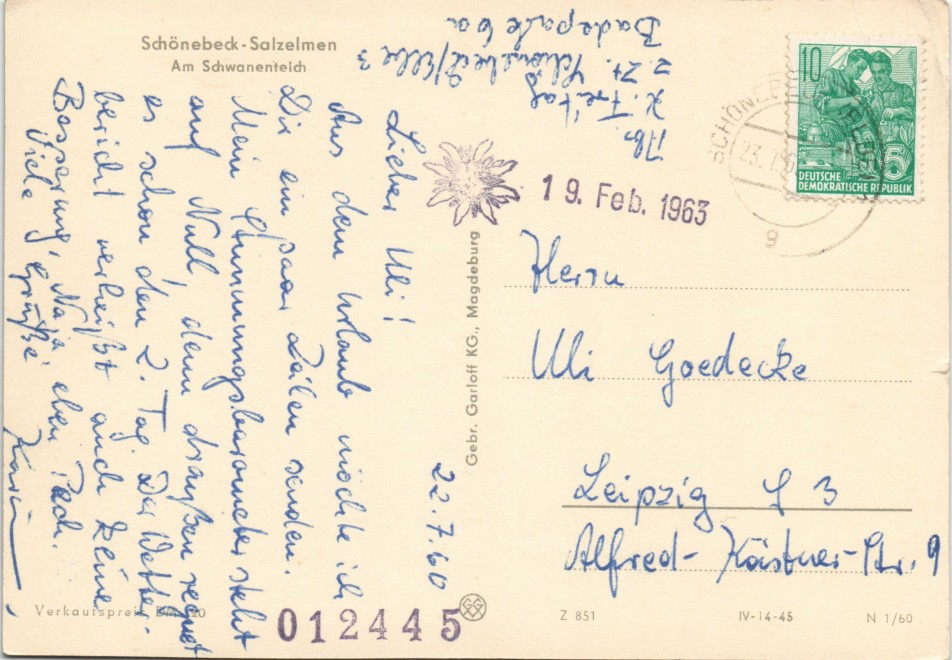 Schönebeck-Salzelmen
Am Schwanenteich
Abs.
K. Freitag
z. Zt. Schönebeck/Elbe 3
Badepark 6a
22.7.60
Lieber Uli!
Aus dem Urlaub möchte ich
Dir ein paar Zeilen senden.
Mein Stimmungsbarometer steht
auf Null, denn draußen regnet
es schon den 2. Tag. Der Wetter-
bericht verheißt auch keine
Besserung, Na ja eben Pech.
Viele Grüße Karin
Gebr. Garloff KG., Magdeburg
19. Feb. 1963
10
5
DEUTSCHE
DEMOKRATISCHE REPUBLIK
SCHÖNEB
23.7
g
Herrn
Uli Goedecke
Leipzig S 3
Alfred-Kästner-Str. 9
Verkaufspreis DM 0,20
012445
Z 851
IV-14-45
N 1/60